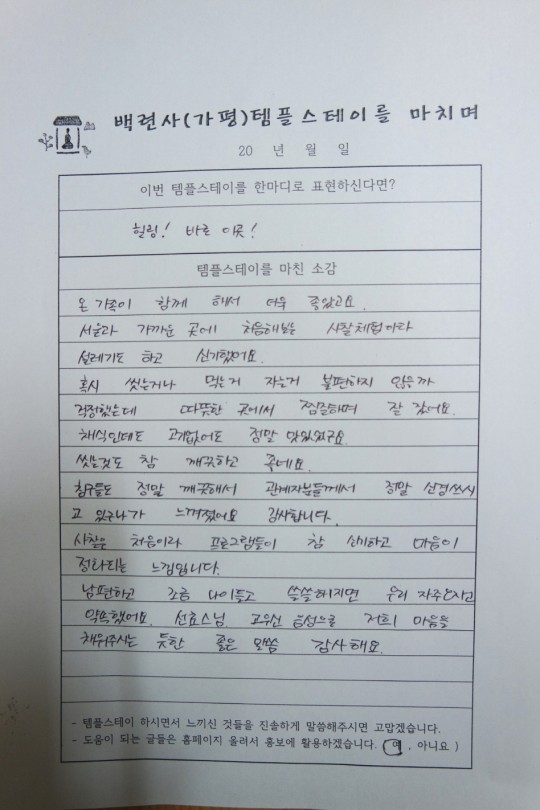 백련사(가평)템플스테이를 마치며
20 년 월 일
이번 템플스테이를 한마디로 표현하신다면?
힐링! 바로 이곳!
템플스테이를 마친 소감
온 가족이 함께 해서 더욱 좋았고요.
서울과 가까운 곳에 처음해보는 사찰체험이라
설레기도 하고 신기했어요.
혹시 씻는거나 먹는거 자는거 불편하지 않을까
걱정했는데 따뜻한 곳에서 찜질하며 잘 잤어요.
채식인데도 고기없어도 정말 맛있었구요.
씻는것도 참 깨끗하고 좋네요.
침구들도 정말 깨끗해서 관계자분들께서 정말 신경쓰시
고 있구나가 느껴졌어요 감사합니다.
사찰은 처음이라 프로그램들이 참 소중하고 마음이
정화되는 느낌입니다.
남편하고 조금 나이들고 쓸쓸해지면 우리 자주오자고
약속했어요. 선효스님 고우신 음성으로 저희 마음을
채워주시는 듯한 좋은 말씀 감사해요.
- 템플스테이 하시면서 느끼신 것들을 진솔하게 말씀해주시면 고맙겠습니다.
- 도움이 되는 글들은 홈페이지 올려서 홍보에 활용하겠습니다. (예, 아니요)